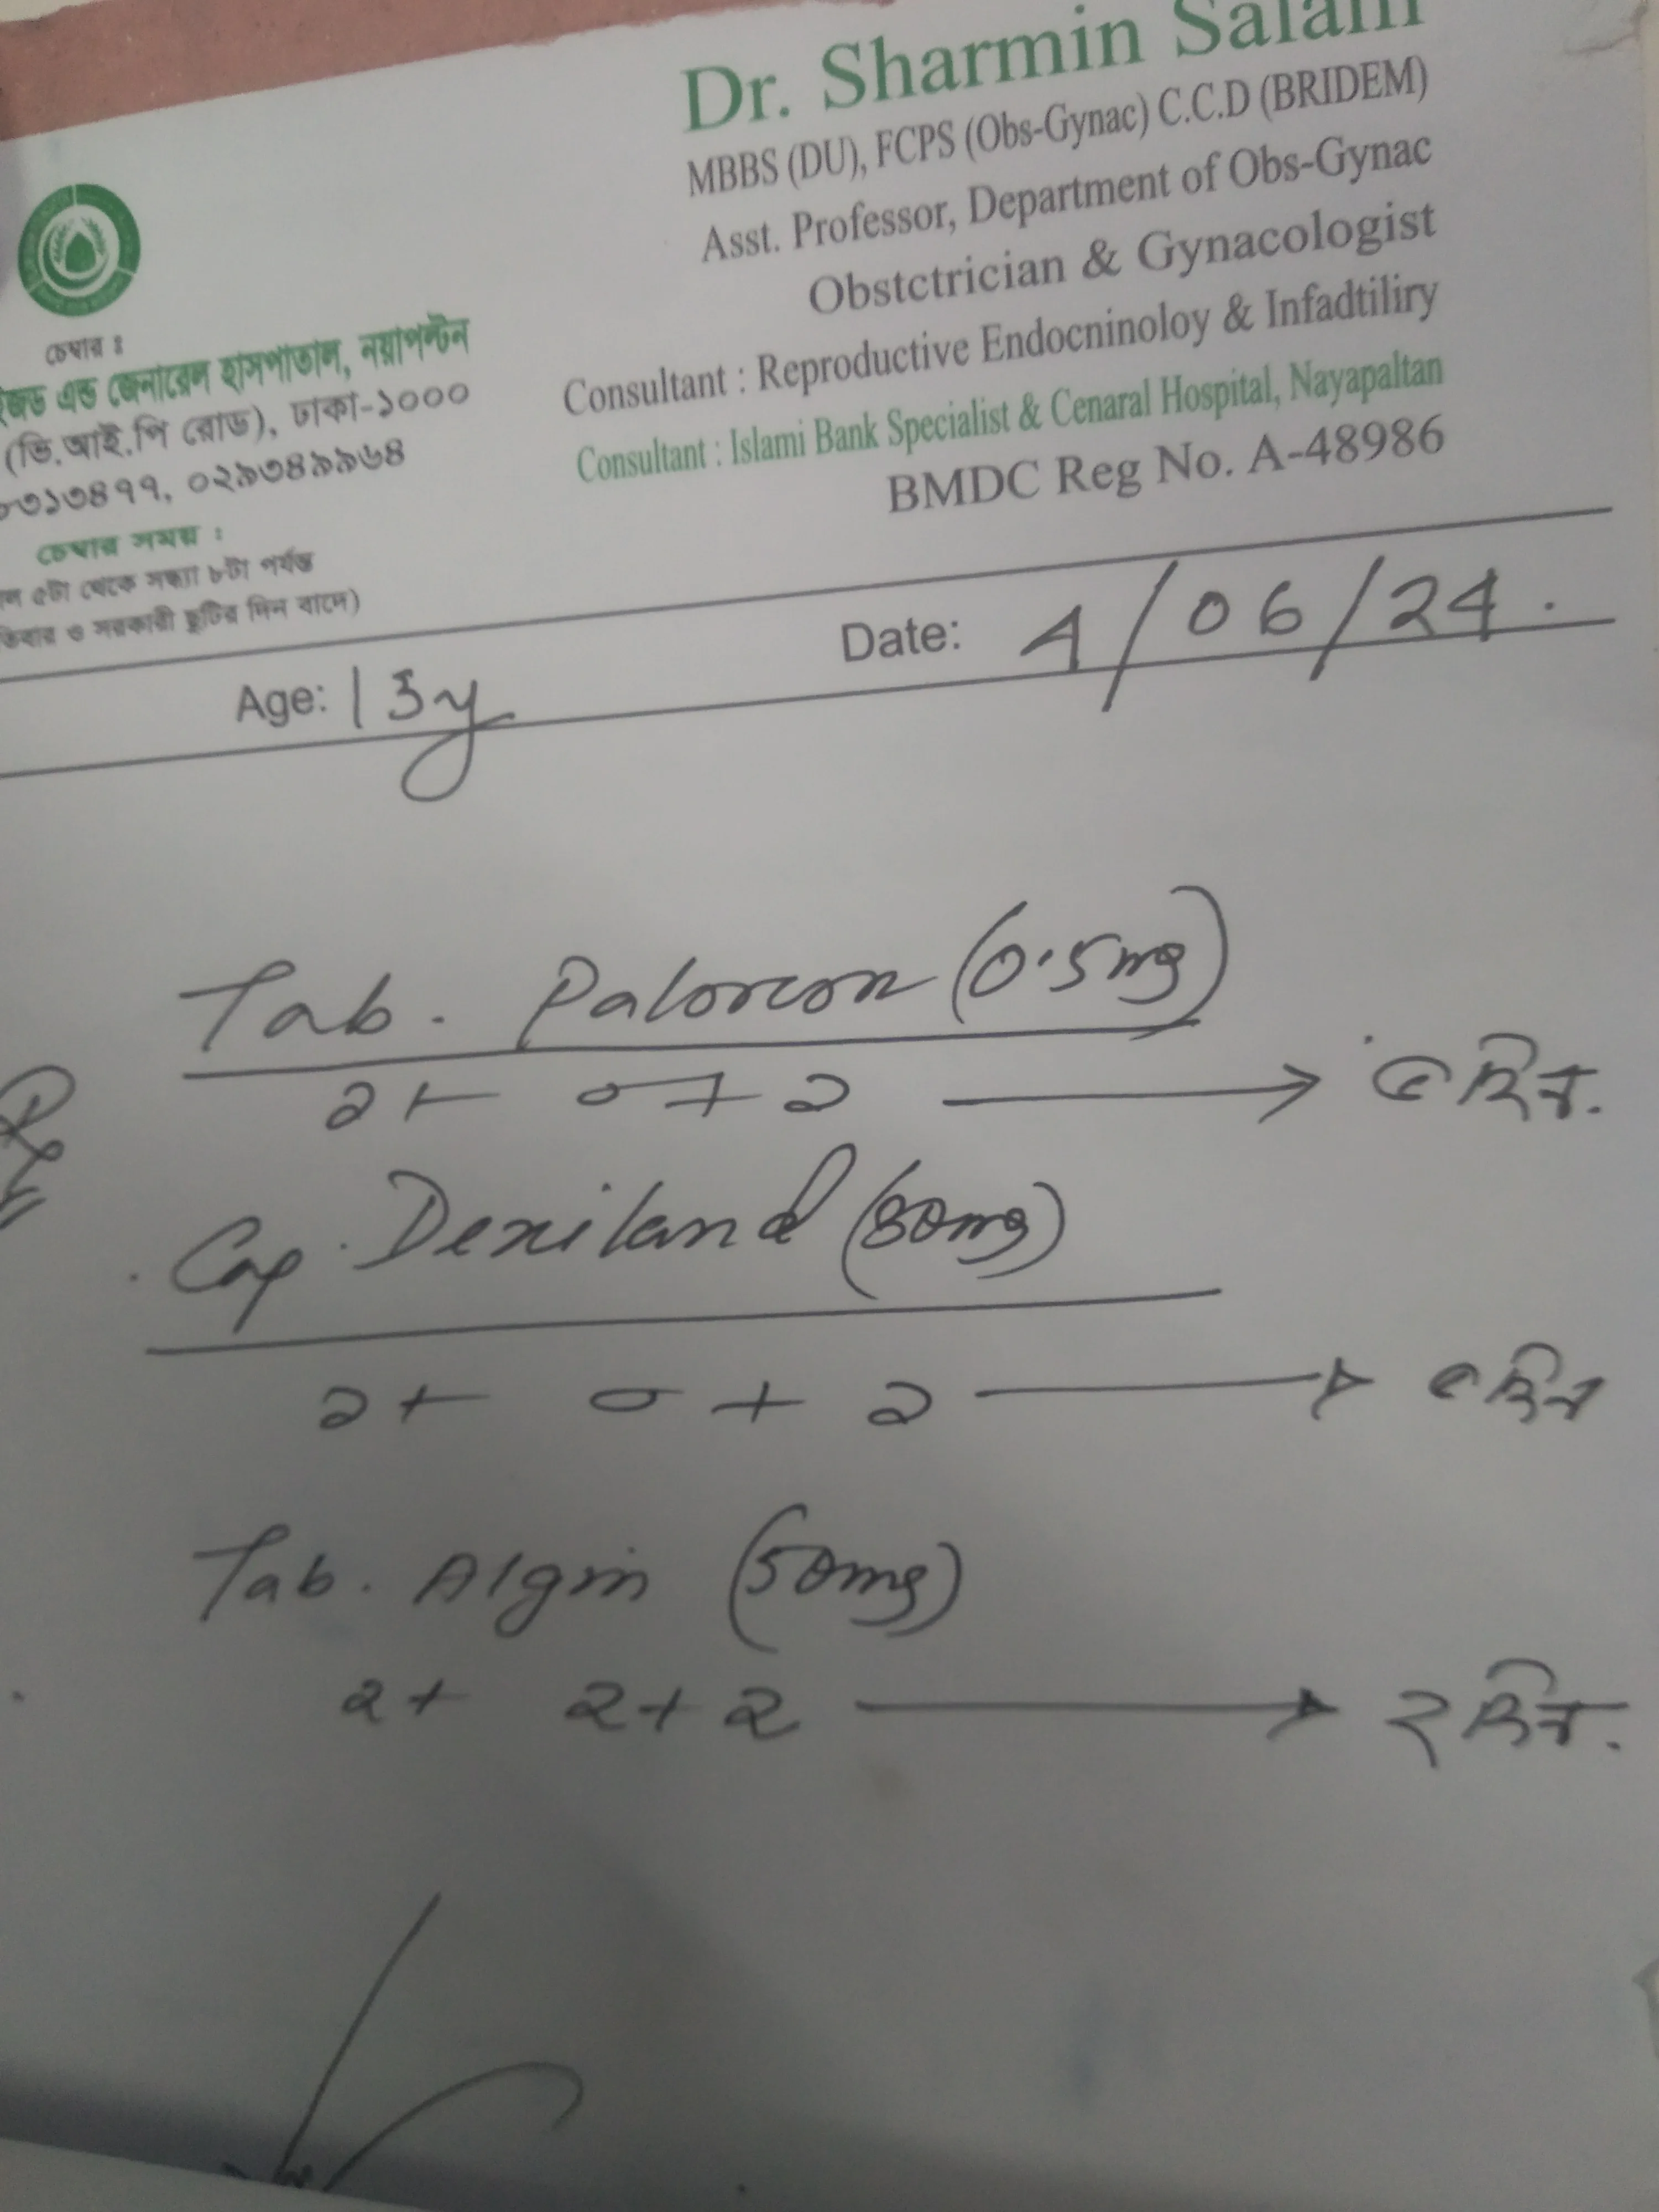 Dr. Sharmin Salam
MBBS (DU), FCPS (Obs-Gynac) C.C.D (BRIDEM)
Asst. Professor, Department of Obs-Gynac
Obstctrician & Gynacologist
Consultant : Reproductive Endocninoloy & Infadtiliry
Consultant : Islami Bank Specialist & Cenaral Hospital, Nayapaltan
BMDC Reg No. A-48986
চেম্বার ঃ
এন্ড জেনারেল হাসপাতাল, নয়াপল্টন
(ভি.আই.পি রোড), ঢাকা-১০০০
৩১৩৪৭৭, ০২৯৩৪৯৯৬৪
চেম্বার সময় :
৫টা থেকে সন্ধ্যা ৮টা পর্যন্ত
ও সরকারী ছুটির দিন বাদে)
Age: 13y
Date: 4/06/24.
Rx
Tab. Palorcon (0.5mg)
১+ ০+১ → ৫ দিন.
Cap. Dexiland (30mg)
১+ ০+ ১ → ৫ দিন
Tab. Algin (50mg)
১+ ১+১ → ২ দিন.